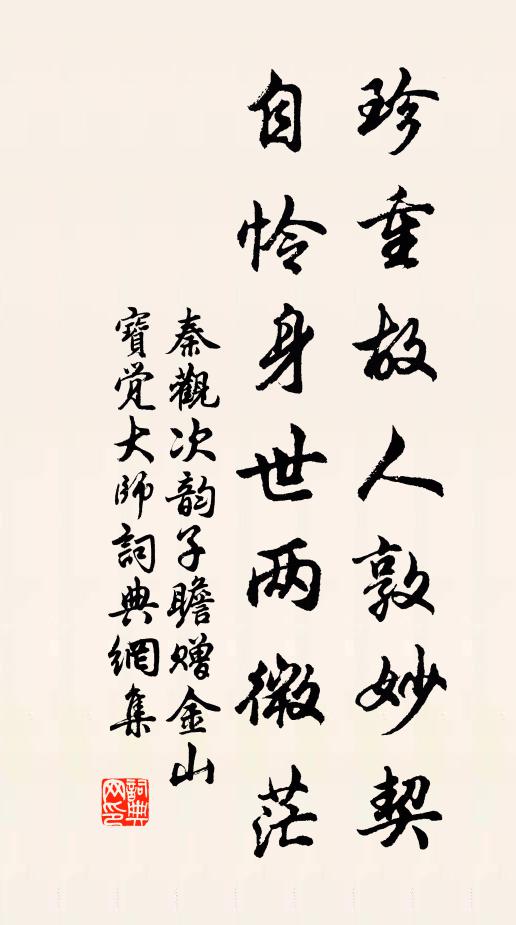 珍重故人敦妙契
自怜身世两微茫
秦觀次韵子瞻赠金山
寳觉大师詞典網集
詞典网印